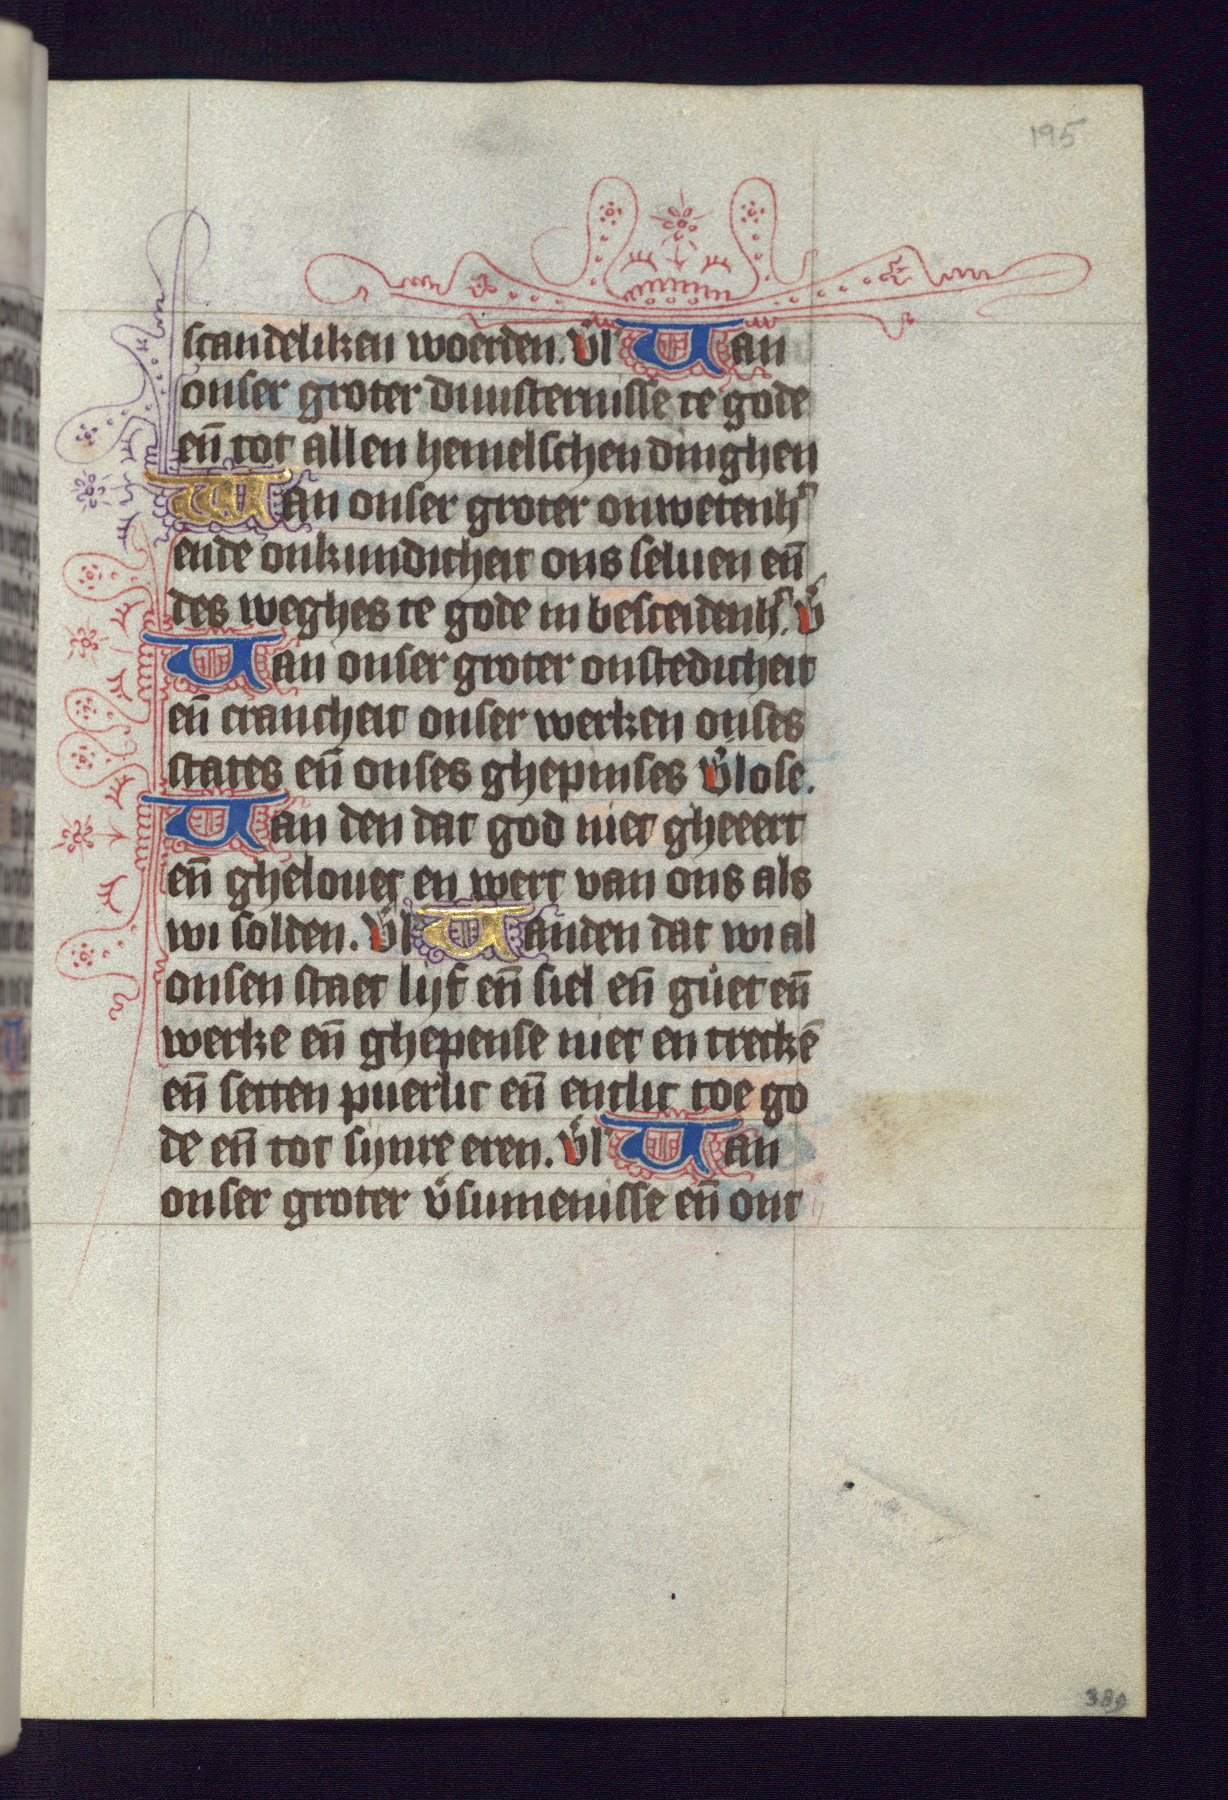 195
scandeliken woerden. v̄l Van
onser groter duusternisse te gode
en̄ tot allen hemelschen dinghen
Van onser groter onwetenh
ende onkundicheit ons seluen en̄
des weghes te gode in besceidenh. v̄
Van onser groter onstedicheit
en̄ crancheit onser werken onses
states en̄ onses ghepinses v̄lose.
Van den dat god niet gheeert
en̄ ghelouet en wert van ons als
wi solden. v̄l Vanden dat wi al
onsen staet lijf en̄ siel en̄ gůet en̄
werke en̄ ghepense niet en treckē
en̄ setten puerlic en̄ entlic toe go
de en̄ tot sijnre eren. v̄l Van
onser groter v̄sumenisse en̄ ont
389